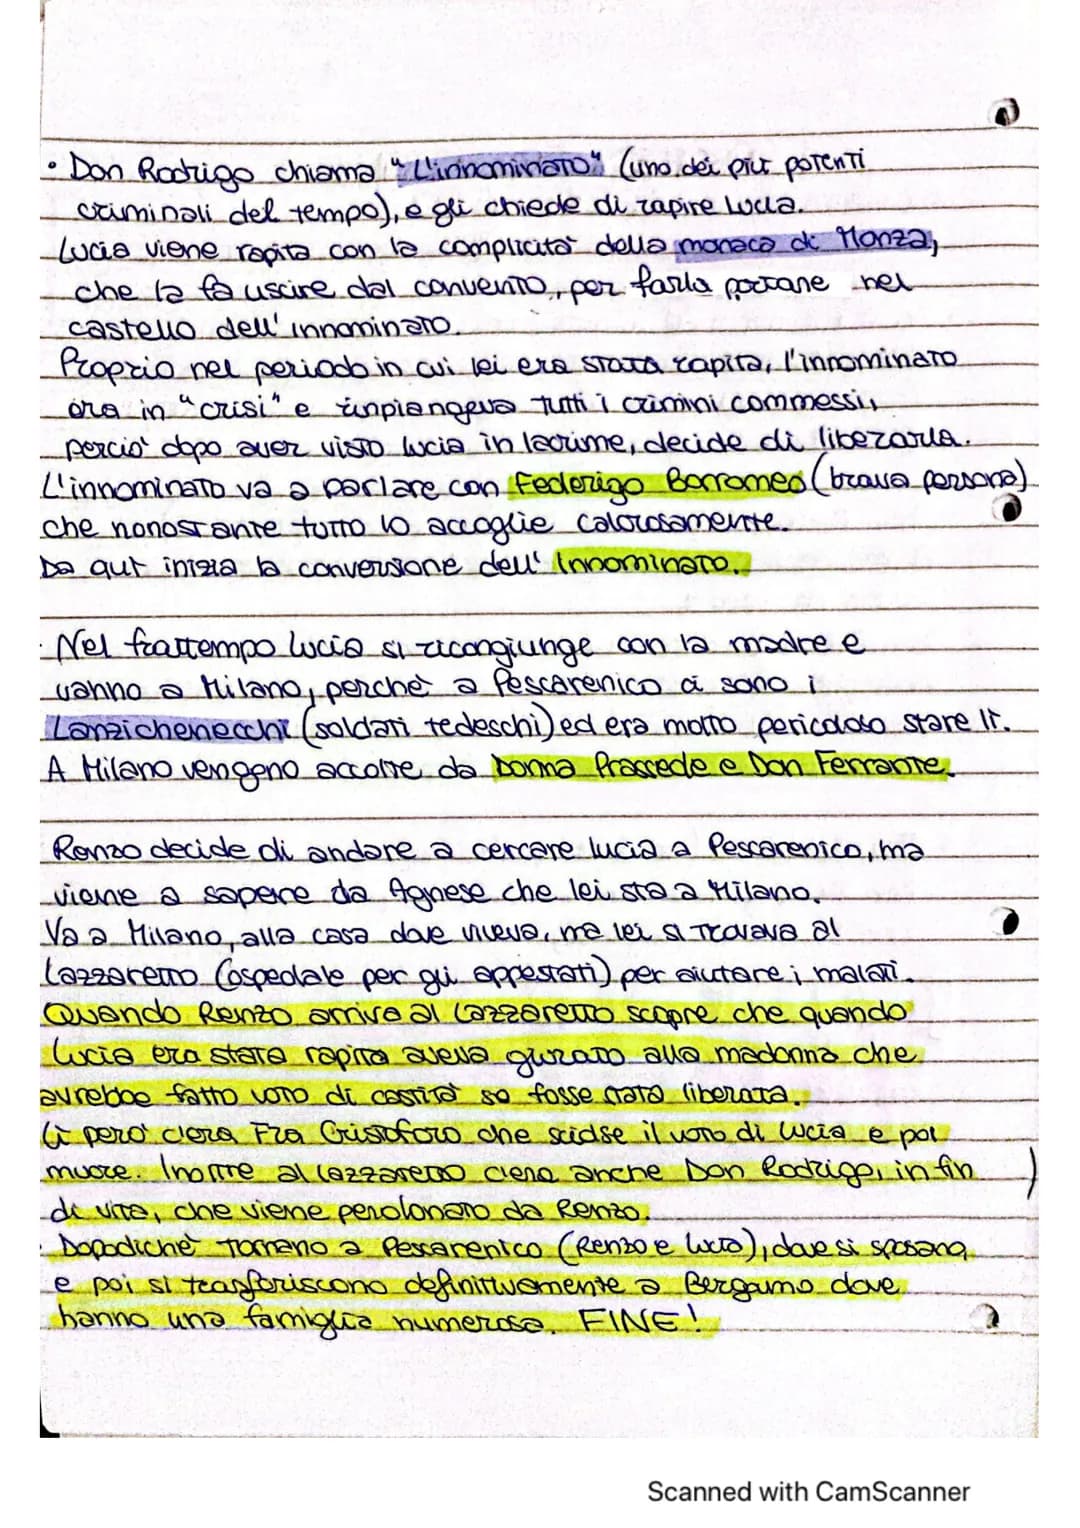 • Don Rodrigo chiama "L'innominato" (uno dei più potenti
criminali del tempo), e gli chiede di rapire Lucia.
Lucia viene rapita con la complicità della monaca di Monza,
che la fa uscire dal convento, per farla portare nel
castello dell'innominato.
Proprio nel periodo in cui lei era stata rapita, l'innominato
era in "crisi" e rimpiangeva tutti i crimini commessi,
perciò dopo aver visto Lucia in lacrime, decide di liberarla.
L'innominato va a parlare con Federigo Borromeo (brava persona)
che nonostante tutto lo accoglie calorosamente.
Da qui inizia la conversione dell'Innominato.
· Nel frattempo Lucia si ricongiunge con la madre e
vanno a Milano, perchè a Pescarenico ci sono i
Lanzichenecchi (soldati tedeschi) ed era molto pericoloso stare lì.
A Milano vengono accolte da Donna Prassede e Don Ferrante.
Renzo decide di andare a cercare Lucia a Pescarenico, ma
viene a sapere da Agnese che lei sta a Milano.
Va a Milano, alla casa dove viveva, ma lei si trovava al
Lazzaretto (ospedale per gli appestati) per aiutare i malati.
Quando Renzo arriva al Lazzaretto scopre che quando
Lucia era stata rapita aveva giurato alla madonna che
avrebbe fatto voto di castità se fosse stata liberata.
Lì però c'era Fra Cristoforo che scidse il voto di Lucia e poi
muore. Inoltre al lazzaretto c'era anche Don Rodrigo, in fin
di vita, che viene perdonato da Renzo.
· Dopodichè tornano a Pescarenico (Renzo e Lucia), dove si sposano,
e poi si trasferiscono definitivamente a Bergamo dove
hanno una famiglia numerosa. FINE!
Scanned with CamScanner